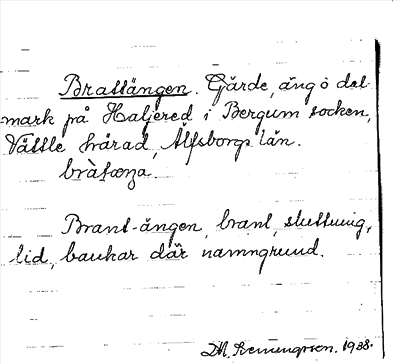 Brattängen. Gärde, äng o del
mark på Haljered i Bergum socken,
Vättle härad, Älfsborgs län.
Brant-ängen, brant, sluttning,
lid, backar där namngrund.
1938.